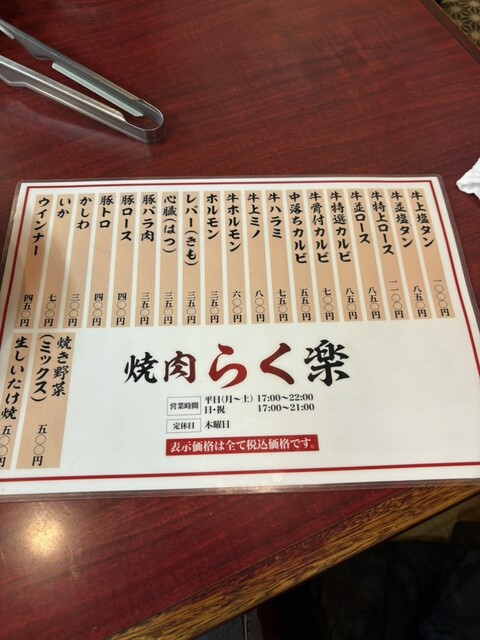 牛上塩タン 一〇〇〇円
牛並塩タン 八五〇円
牛特上ロース 一一〇〇円
牛並ロース 八五〇円
牛特選カルビ 八五〇円
牛骨付カルビ 七〇〇円
中落ちカルビ 五五〇円
牛ハラミ 七五〇円
牛上ミノ 八〇〇円
牛ホルモン 六〇〇円
ホルモン 三五〇円
レバー(きも) 三五〇円
心臓(はつ) 三五〇円
豚バラ肉 三五〇円
豚ロース 四〇〇円
豚トロ 四〇〇円
かしわ 三〇〇円
いか 七〇〇円
ウインナー 四五〇円
焼き野菜(ミックス) 五〇〇円
生しいたけ焼 五〇〇円
焼肉らく楽
営業時間 平日(月～土) 17:00～22:00
日・祝 17:00～21:00
定休日 木曜日
表示価格は全て税込価格です。